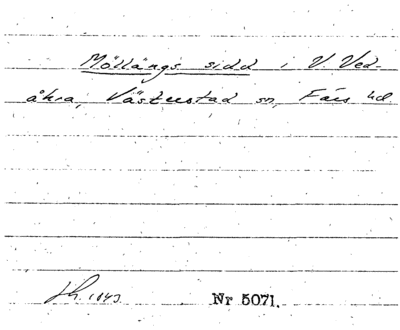 Möllängs sidd i V. Ved-
åkra, Västerstad sn, Färs hd
Nr 5071.